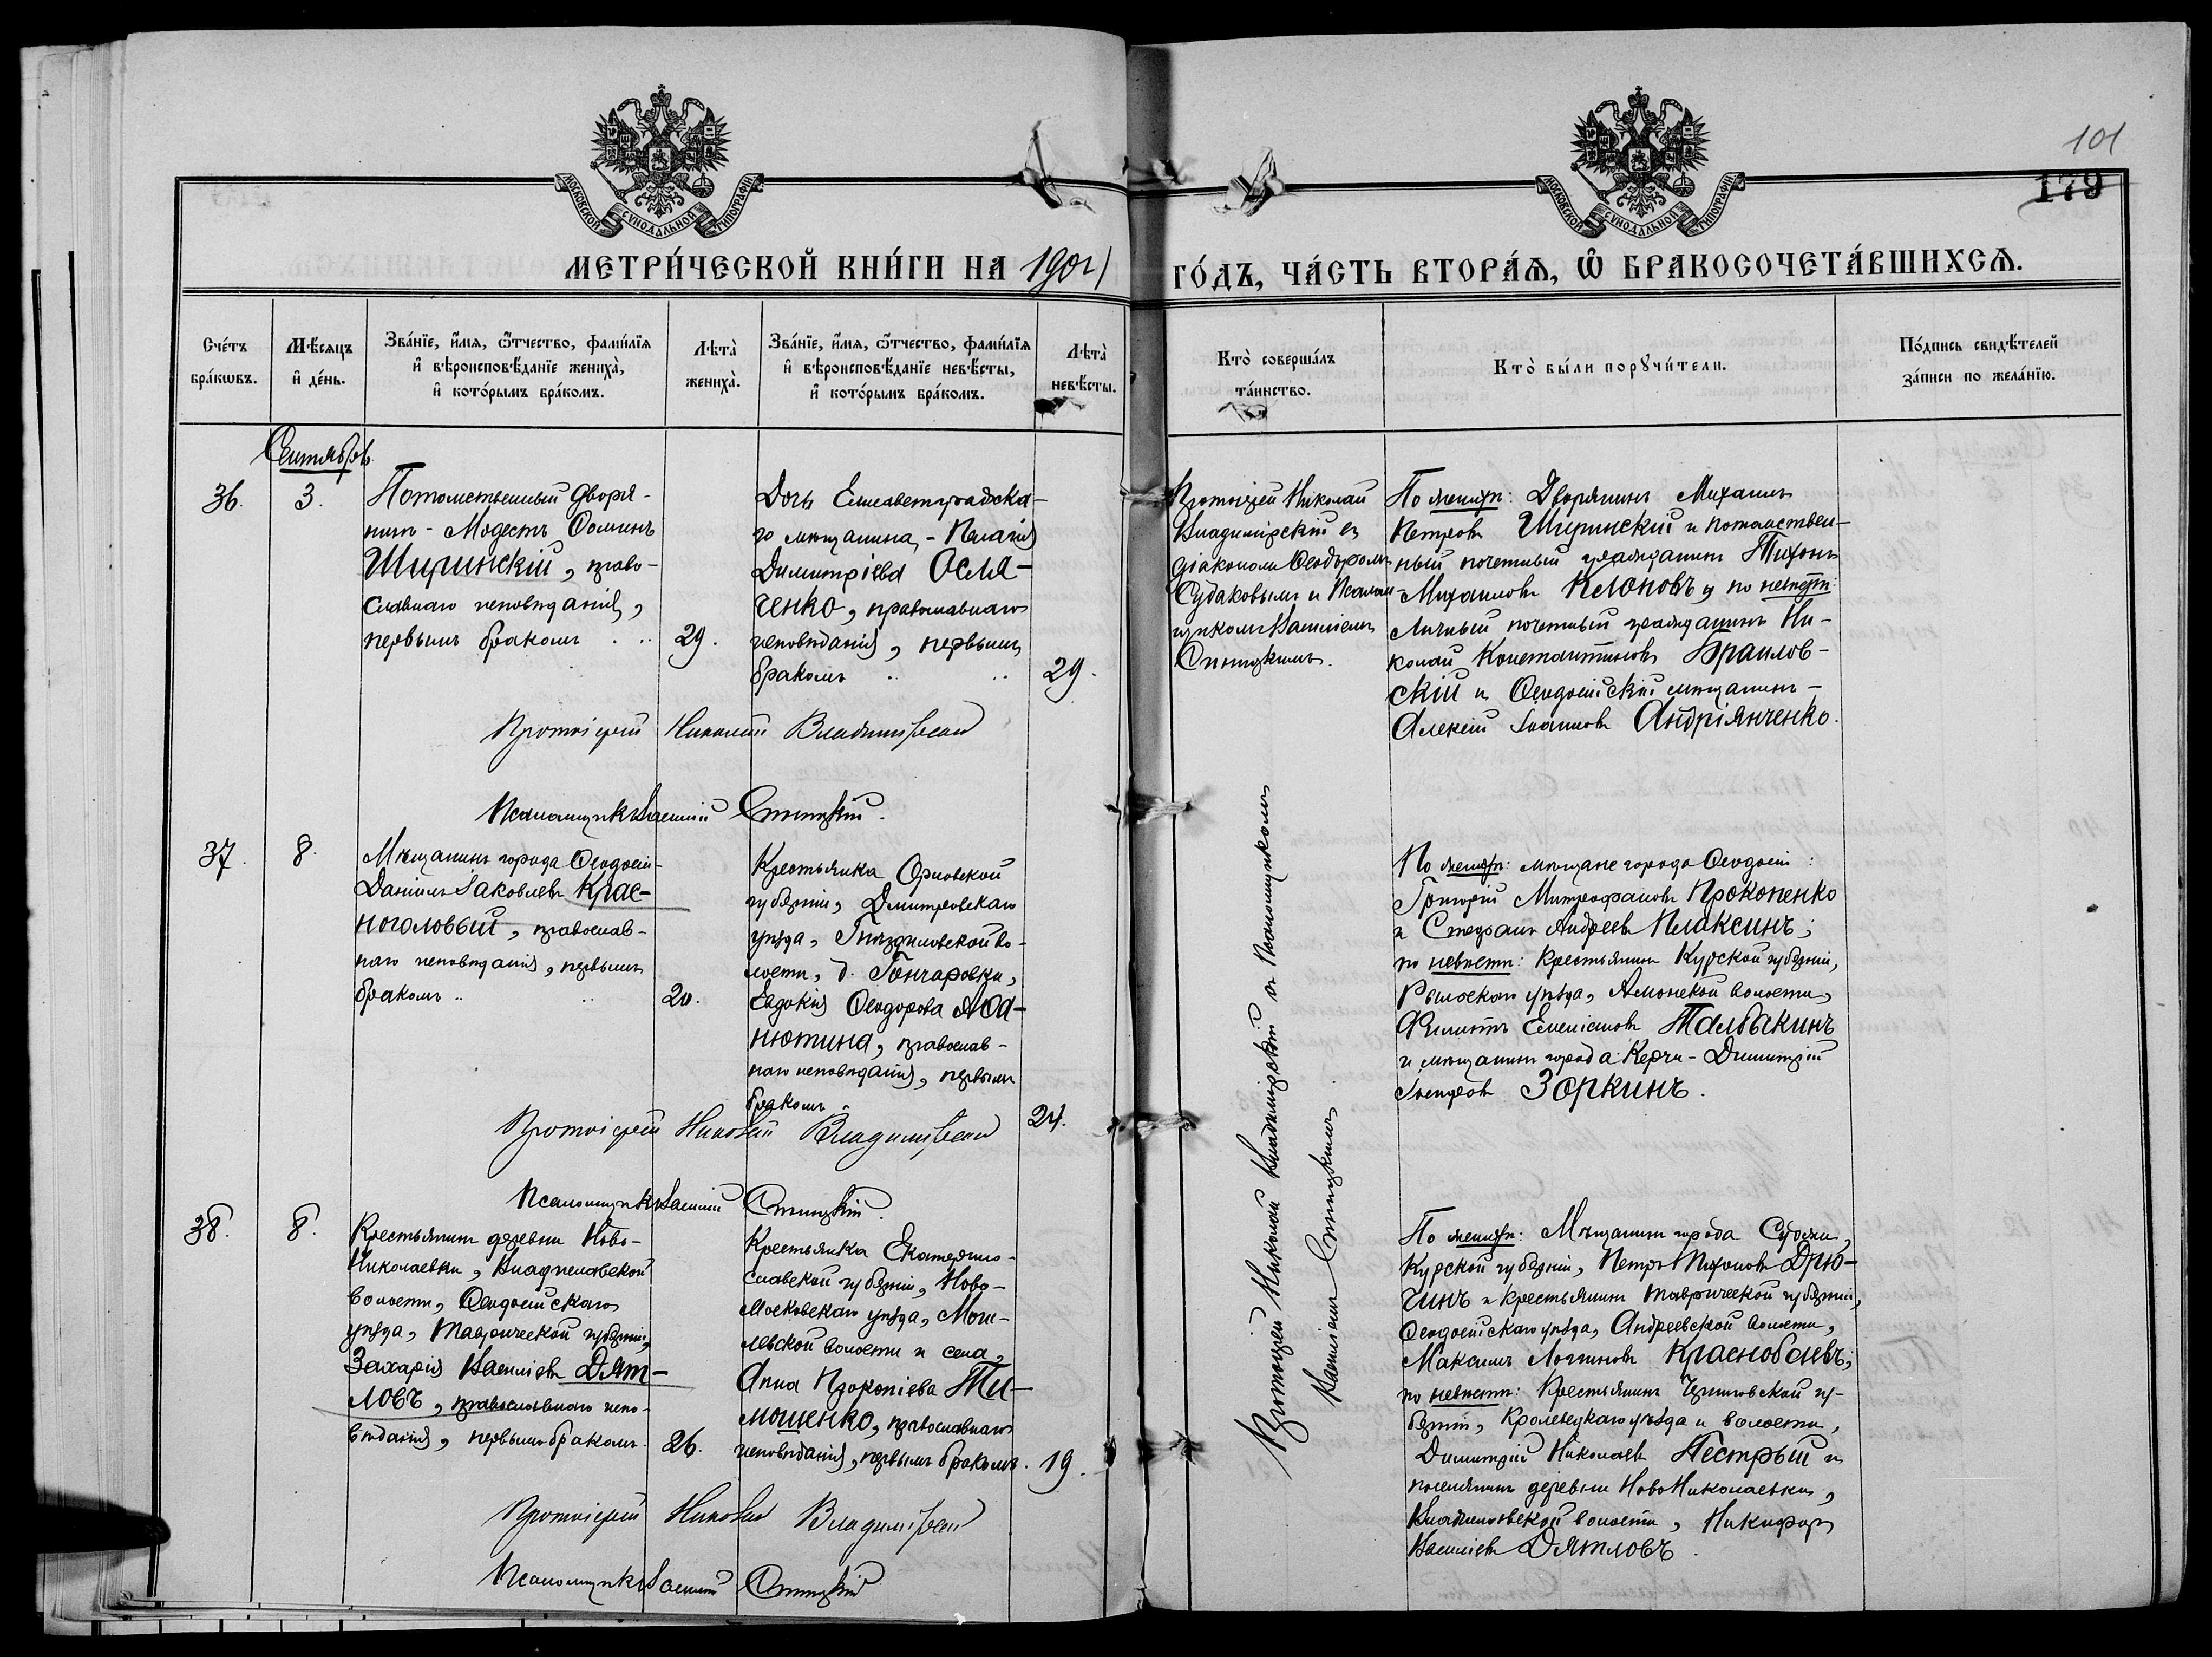 101
179
МОСКОВСКОЙ СѴНОДАЛЬНОЙ ТИПОГРАФІИ
МОСКОВСКОЙ СѴНОДАЛЬНОЙ ТИПОГРАФІИ
МЕТРИ́ЧЕСКОЙ КНИ́ГИ НА 1901
ГО́ДЪ, ЧА́СТЬ ВТОРА́Ѧ, Ѽ БРАКОСОЧЕТА́ВШИХСѦ.
Сче́тъ бра́кѡвъ.
Мѣ́сяцъ и҆ де́нь.
Зва́нїе, и҆́мѧ, ѻ҆́тчество, фами́лїѧ
и҆ вѣроисповѣ́данїе жениха̀,
и҆ кото́рымъ бра́комъ.
Лѣта̀ жениха̀.
Зва́нїе, и҆́мѧ, ѻ҆́тчество, фами́лїѧ
и҆ вѣроисповѣ́данїе невѣ́сты,
и҆ кото́рымъ бра́комъ.
Лѣта̀ невѣ́сты.
Кто̀ соверша́лъ та́инство.
Кто̀ бы́ли порꙋчи́тели.
По́дпись свидѣ́телей
за́писи по жела́нїю.
Сентябрь
36.
3.
Потомственный дворя-
нинъ - Модестъ Ѳоминъ
Ширинскій, право-
славнаго исповѣданія,
первымъ бракомъ
29.
Дочь Елисаветградска-
го мѣщанина, - Пелагія
Димитріева Осля-
ченко, православнаго
исповѣданія, первымъ
бракомъ
29.
Протоіерей Николай
Владимірскій съ
діакономъ Ѳеодоромъ
Судаковымъ и Псалом-
щикомъ Василіемъ
Спицкимъ.
По женихѣ: Дворянинъ Михаилъ
Петровъ Ширинскій и потомствен-
ный почетный гражданинъ Тихонъ
Михаиловъ Клоновъ; по невѣстѣ:
личный почетный гражданинъ Ни-
колай Константиновъ Браилов-
скій и Ѳеодосійскій мѣщанинъ -
Алексій Іоанновъ Андріянченко.
Протоіерей Николай Владимірскій
Псаломщикъ Василій Спицкій.
37.
8.
Мѣщанинъ города Ѳеодосіи -
Даніилъ Іаковлевъ Крас-
ноголовый, православ-
наго исповѣданія, первымъ
бракомъ
20.
Крестьянка Орловской
губерніи, Дмитровскаго
уѣзда, Гнѣздиловской во-
лости, д. Гончаровки,
Евдокія Ѳеодорова
нютина, православ-
наго исповѣданія, первымъ
бракомъ
24.
Протоіерей Николай Владимірскій и Псаломщикомъ
Василіемъ Спицкимъ.
По женихѣ: мѣщане города Ѳеодосіи:
Григорій Митрофановъ Прокопенко
и Стефанъ Андреевъ Плаксинъ;
по невѣстѣ: Крестьянинъ Курской губерніи,
Рыльскаго уѣзда, Амонской волости,
Филиппъ Емеліановъ Талбакинъ
и мѣщанинъ города Керчи - Димитрій
Зоркинъ.
Протоіерей Николай Владимірскій
Псаломщикъ Василій Спицкій.
38.
8.
Крестьянинъ деревни Ново-
Николаевки, Владиславской
волости, Ѳеодосійскаго
уѣзда, Таврической губерніи,
Захарія Василіевъ Дят-
ловъ, православнаго испо-
вѣданія, первымъ бракомъ.
26.
Крестьянка Екатерино-
славской губерніи, Ново-
Московскаго уѣзда, Моги-
левской волости и села,
Анна Прокопіева Ти-
мошенко, православнаго
исповѣданія, первымъ бракомъ.
19.
По женихѣ: Мѣщанинъ города Суджи,
Курской губерніи, Петръ Тихоновъ Дрю-
чинъ и крестьянинъ Таврической губерніи,
Ѳеодосійскаго уѣзда, Андреевской волости,
Максимъ Логиновъ Краснобаевъ;
по невѣстѣ: Крестьянинъ Черниговской гу-
берніи, Кролевецкаго уѣзда и волости,
Димитрій Николаевъ Пестрый и
поселянинъ деревни НовоНиколаевки,
Владиславской волости, Никифоръ
Василіевъ Дятловъ.
Протоіерей Николай Владимірскій
Псаломщикъ Василій Спицкій